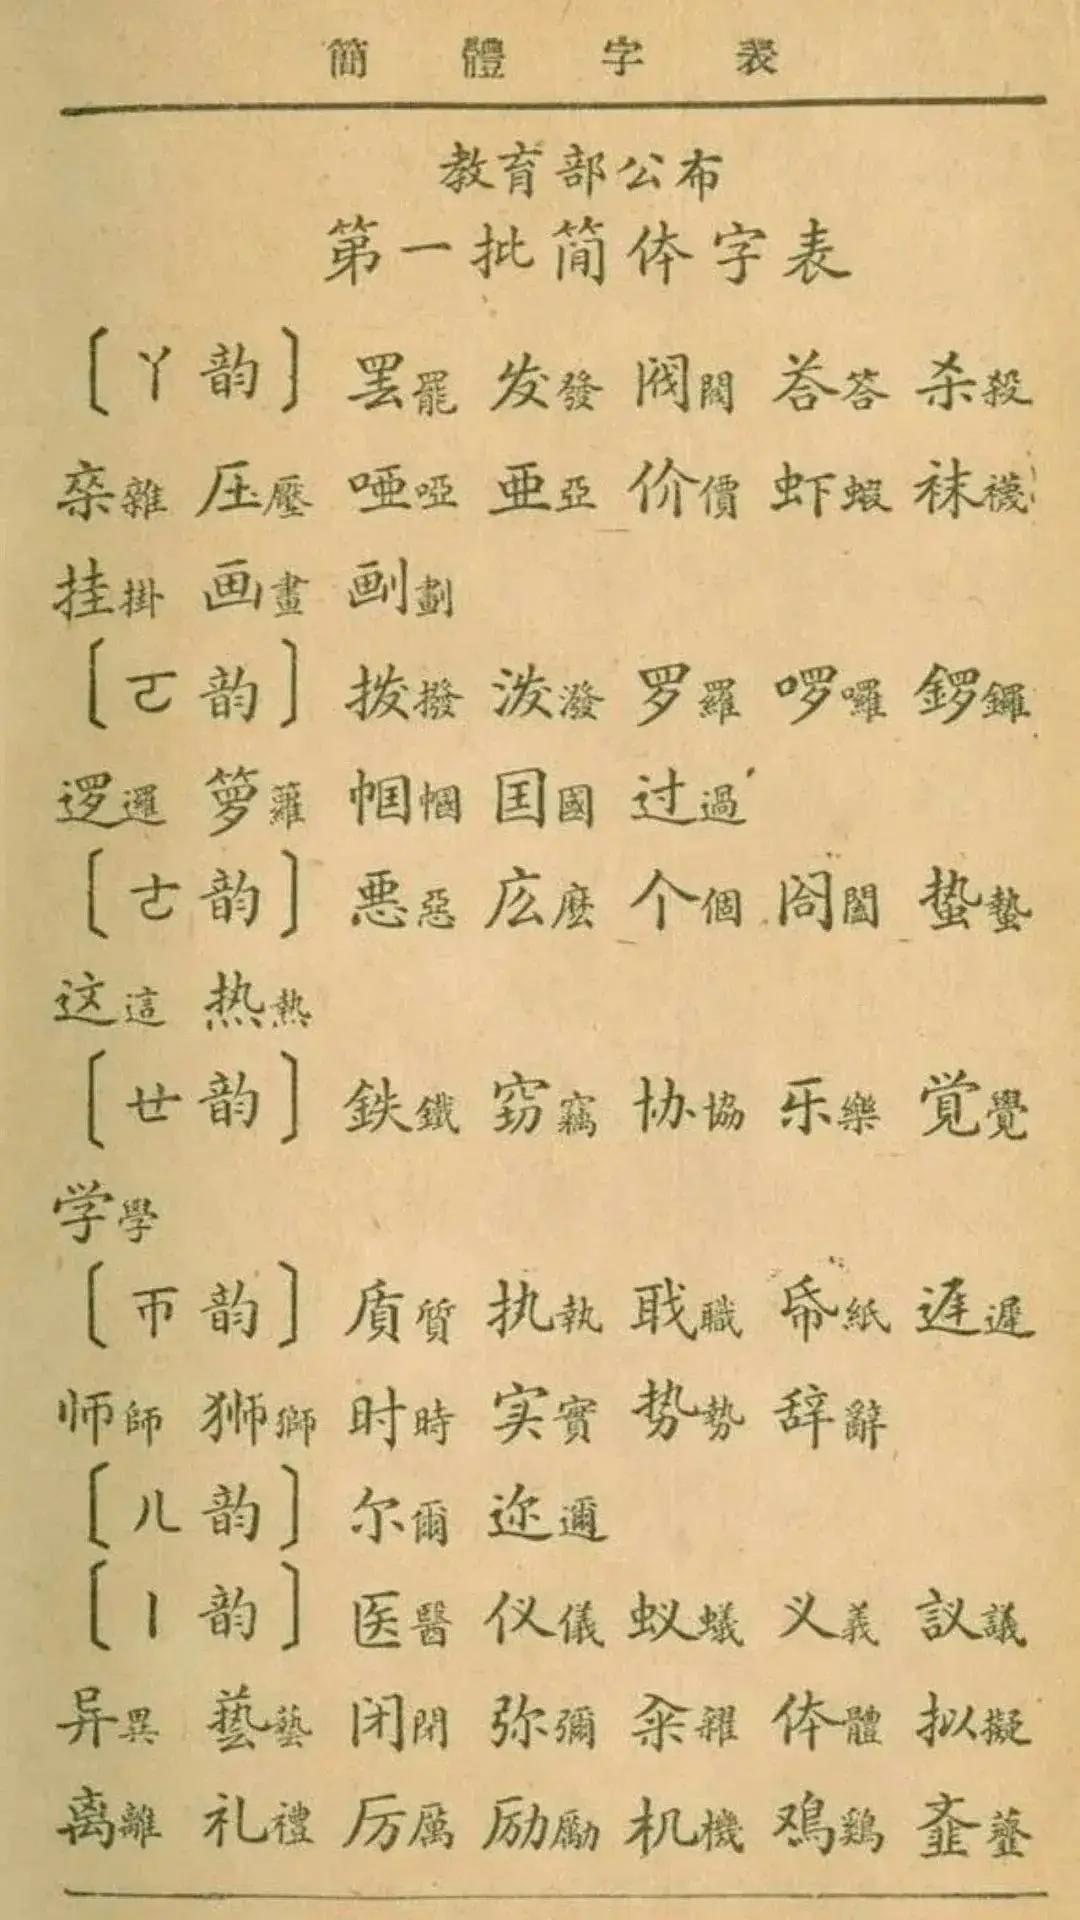 簡體字表
教育部公布
第一批简体字表
[ㄚ韵] 罢罷 发發 阀閥 荅答 杀殺
杂雜 压壓 唖啞 亜亞 价價 虾蝦 袜襪
挂掛 画畫 劃
[ㄛ韵] 拨撥 泼潑 罗羅 啰囉 鑼
逻邏 箩籮 帼幗 国國 过過
[ㄜ韵] 悪惡 庅麼 个個 閤 蛰蟄
这這 热熱
[ㄝ韵] 鉄鐵 窃竊 协協 乐樂 覚覺
学學
[ㄭ韵] 质質 执執 职職 帋紙 迟遲
师師 狮獅 时時 实實 势勢 辞辭
[ㄦ韵] 尔爾 迩邇
[ㄧ韵] 医醫 仪儀 蚁蟻 义義 議
异異 藝 闭閉 弥彌 籴糴 体體 拟擬
离離 礼禮 厉厲 励勵 机機 鸡鷄 齑